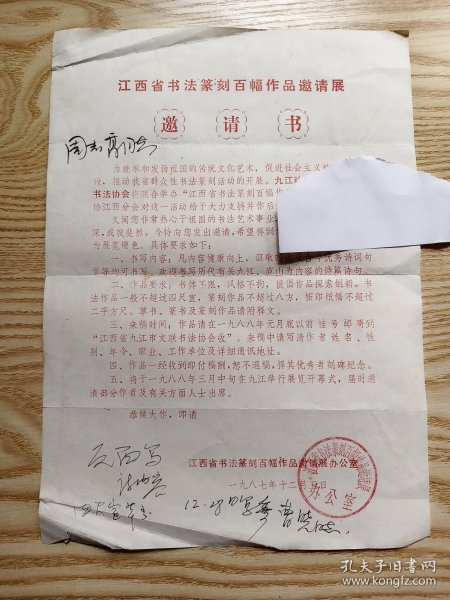 江西省书法篆刻百幅作品邀请展
邀请书
周志高同志
为继承和发扬祖国的传统文化艺术，促进社会主义
设，推动我省群众性书法篆刻活动的开展，九江
书法协会将联合举办“江西省书法篆刻百幅作
协江西分会对这一活动给予大力支持并作后
久闻您非常热心于祖国的书法艺术事业
深，成就斐然。今特向您发出邀请，希望得到
为展览增色。具体要求如下：
一、书写内容，凡内容健康向上，讴歌
章等均可书写，欢迎书写历代有关九江、庐山为内容的诗篇诗句。
二、作品要求：书体不限，风格不拘，提倡作品探索创新。书
法作品一般不超过四尺宣，篆刻作品不超过八方，柜印纸幅不超过
二平方尺。草书、篆书及篆刻作品请附释文。
三、来稿时间，作品请在一九八八年元月底以前挂号邮寄到
“江西省九江市文联书法协会收”。来稿中请写清作者姓名、性
别、年令、职业、工作单位及详细通讯地址。
四、作品一经收到即付稿酬，恕不退稿，择其优秀者刻碑纪念。
五、将于一九八八年三月中旬在九江举行展览开幕式，届时邀
请部分作者及有关方面人士出席。
恭候大作，即请
江西省书法篆刻百幅作品邀请展办公室
一九八七年十二月 日
办公室
孔夫子旧书网
www.kongfz.com